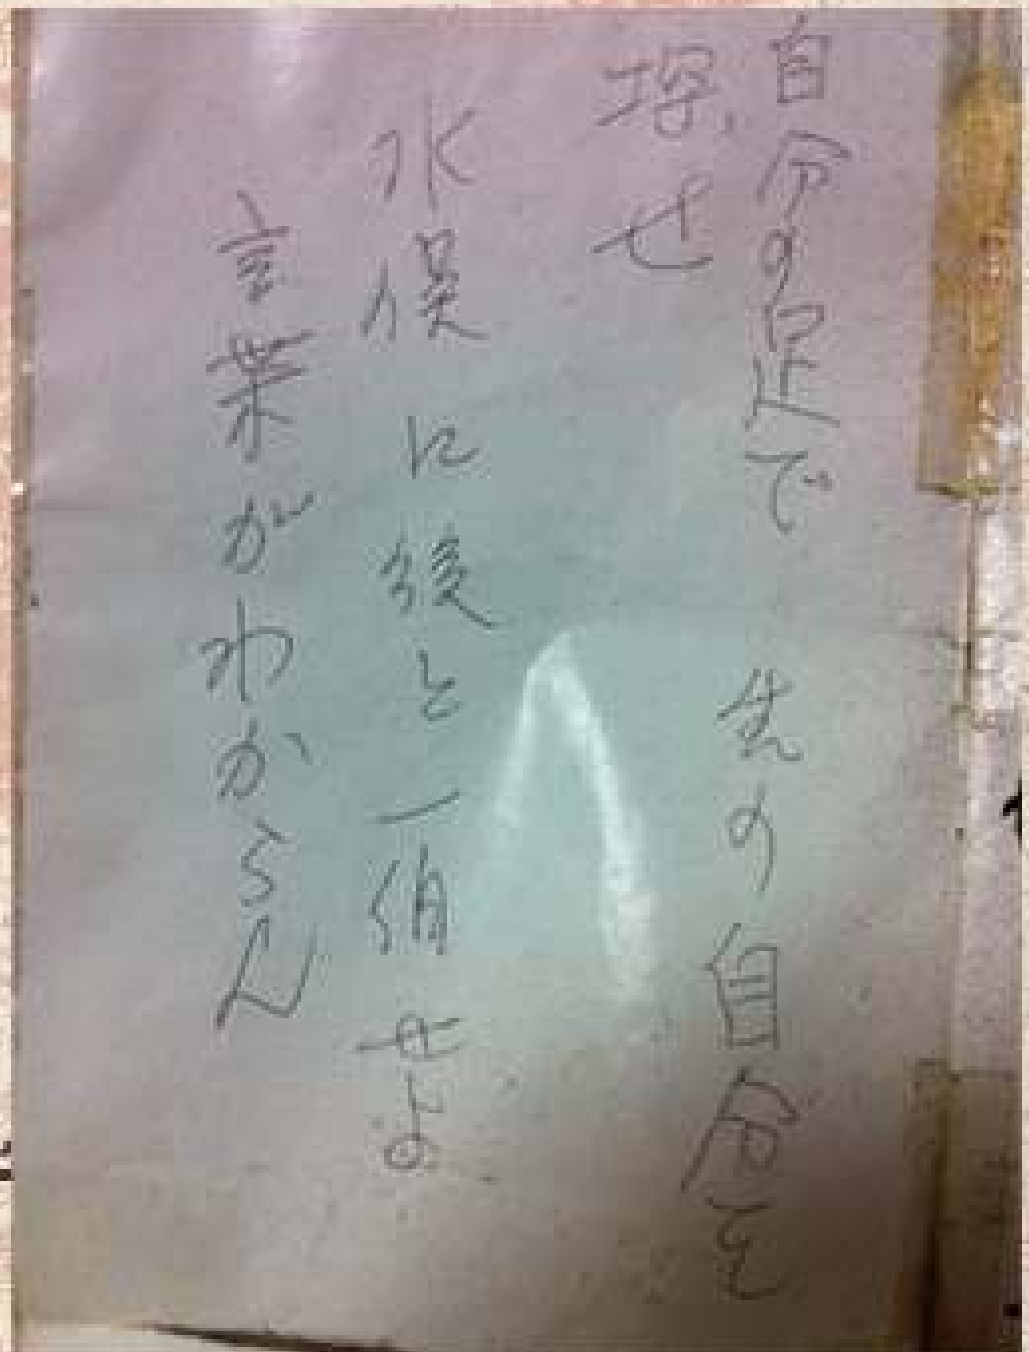 自分の足で 先の自分を
探せ
水俣に後と一緒せよ
言葉がわからん